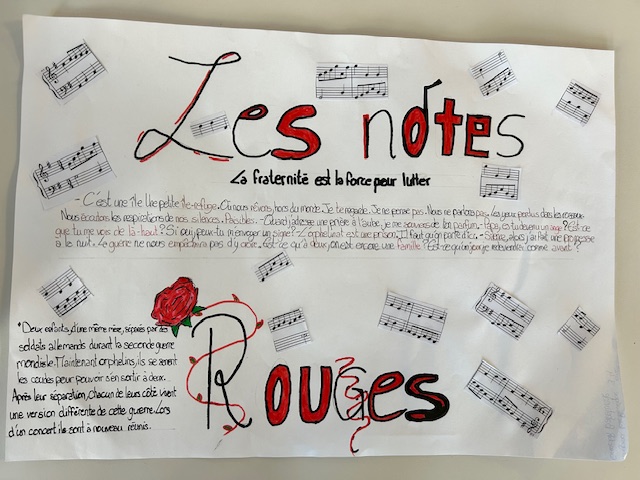 Les notes
La fraternité est la force pour lutter
- C'est une île. Une petite île-refuge. Où nous rêvons, hors du monde. Je te regarde. Je ne pense pas. Nous ne parlons pas. Les yeux perdus dans les
Nous écoutons les respirations de nos silences. Paisibles. - Quand j'adresse une prière à l'aube, je me souviens de ton parfum. - Papa, es tu devenu un ange? Est-ce
que tu me vois de là-haut? Si oui, peux-tu m'envoyer un signe? - L'orphelinat est une prison. Il faut qu'on parte d'ici. - Sabine, alors j'ai fait une promesse
à la nuit. La guerre ne nous empêchera pas d'y croire. Est-ce qu'à deux, on est encore une famille? Est-ce qu'un jour je redeviendrai comme avant?
Rouges
*Deux enfants, d'une même mère, séparés par des
soldats allemands durant la seconde guerre
mondiale. Maintenant orphelins, ils se serrent
les coudes pour pouvoir s'en sortir à deux.
Après leur séparation, chacun de leurs côté vivent
une version différente de cette guerre. Lors
d'un concert ils sont à nouveau réunis.